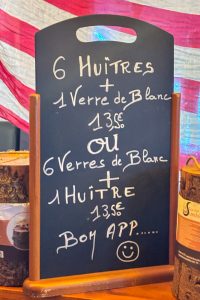 6 HUÎTRES
+
1 Verre de Blanc
13,50€
OU
6 Verres de Blanc
+
1 HUÎTRE
13,50€
BON APP......